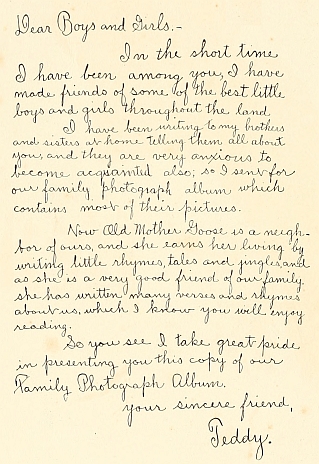 Dear Boys and Girls.-
In the short time
I have been among you, I have
made friends of some of the best little
boys and girls throughout the land
I have been writing to my brothers
and sisters at home telling them all about
you, and they are very anxious to
become acquainted also; so I sent for
our family photograph album which
contains most of their pictures.
Now Old Mother Goose is a neigh-
bor of ours, and she earns her living by
writing little rhymes, tales and jingles, and
as she is a very good friend of our family
she has written many verses and rhymes
about us, which I know you will enjoy
reading.
So you see I take great pride
in presenting you this copy of our
Family Photograph Album.
your sincere friend,
Teddy.